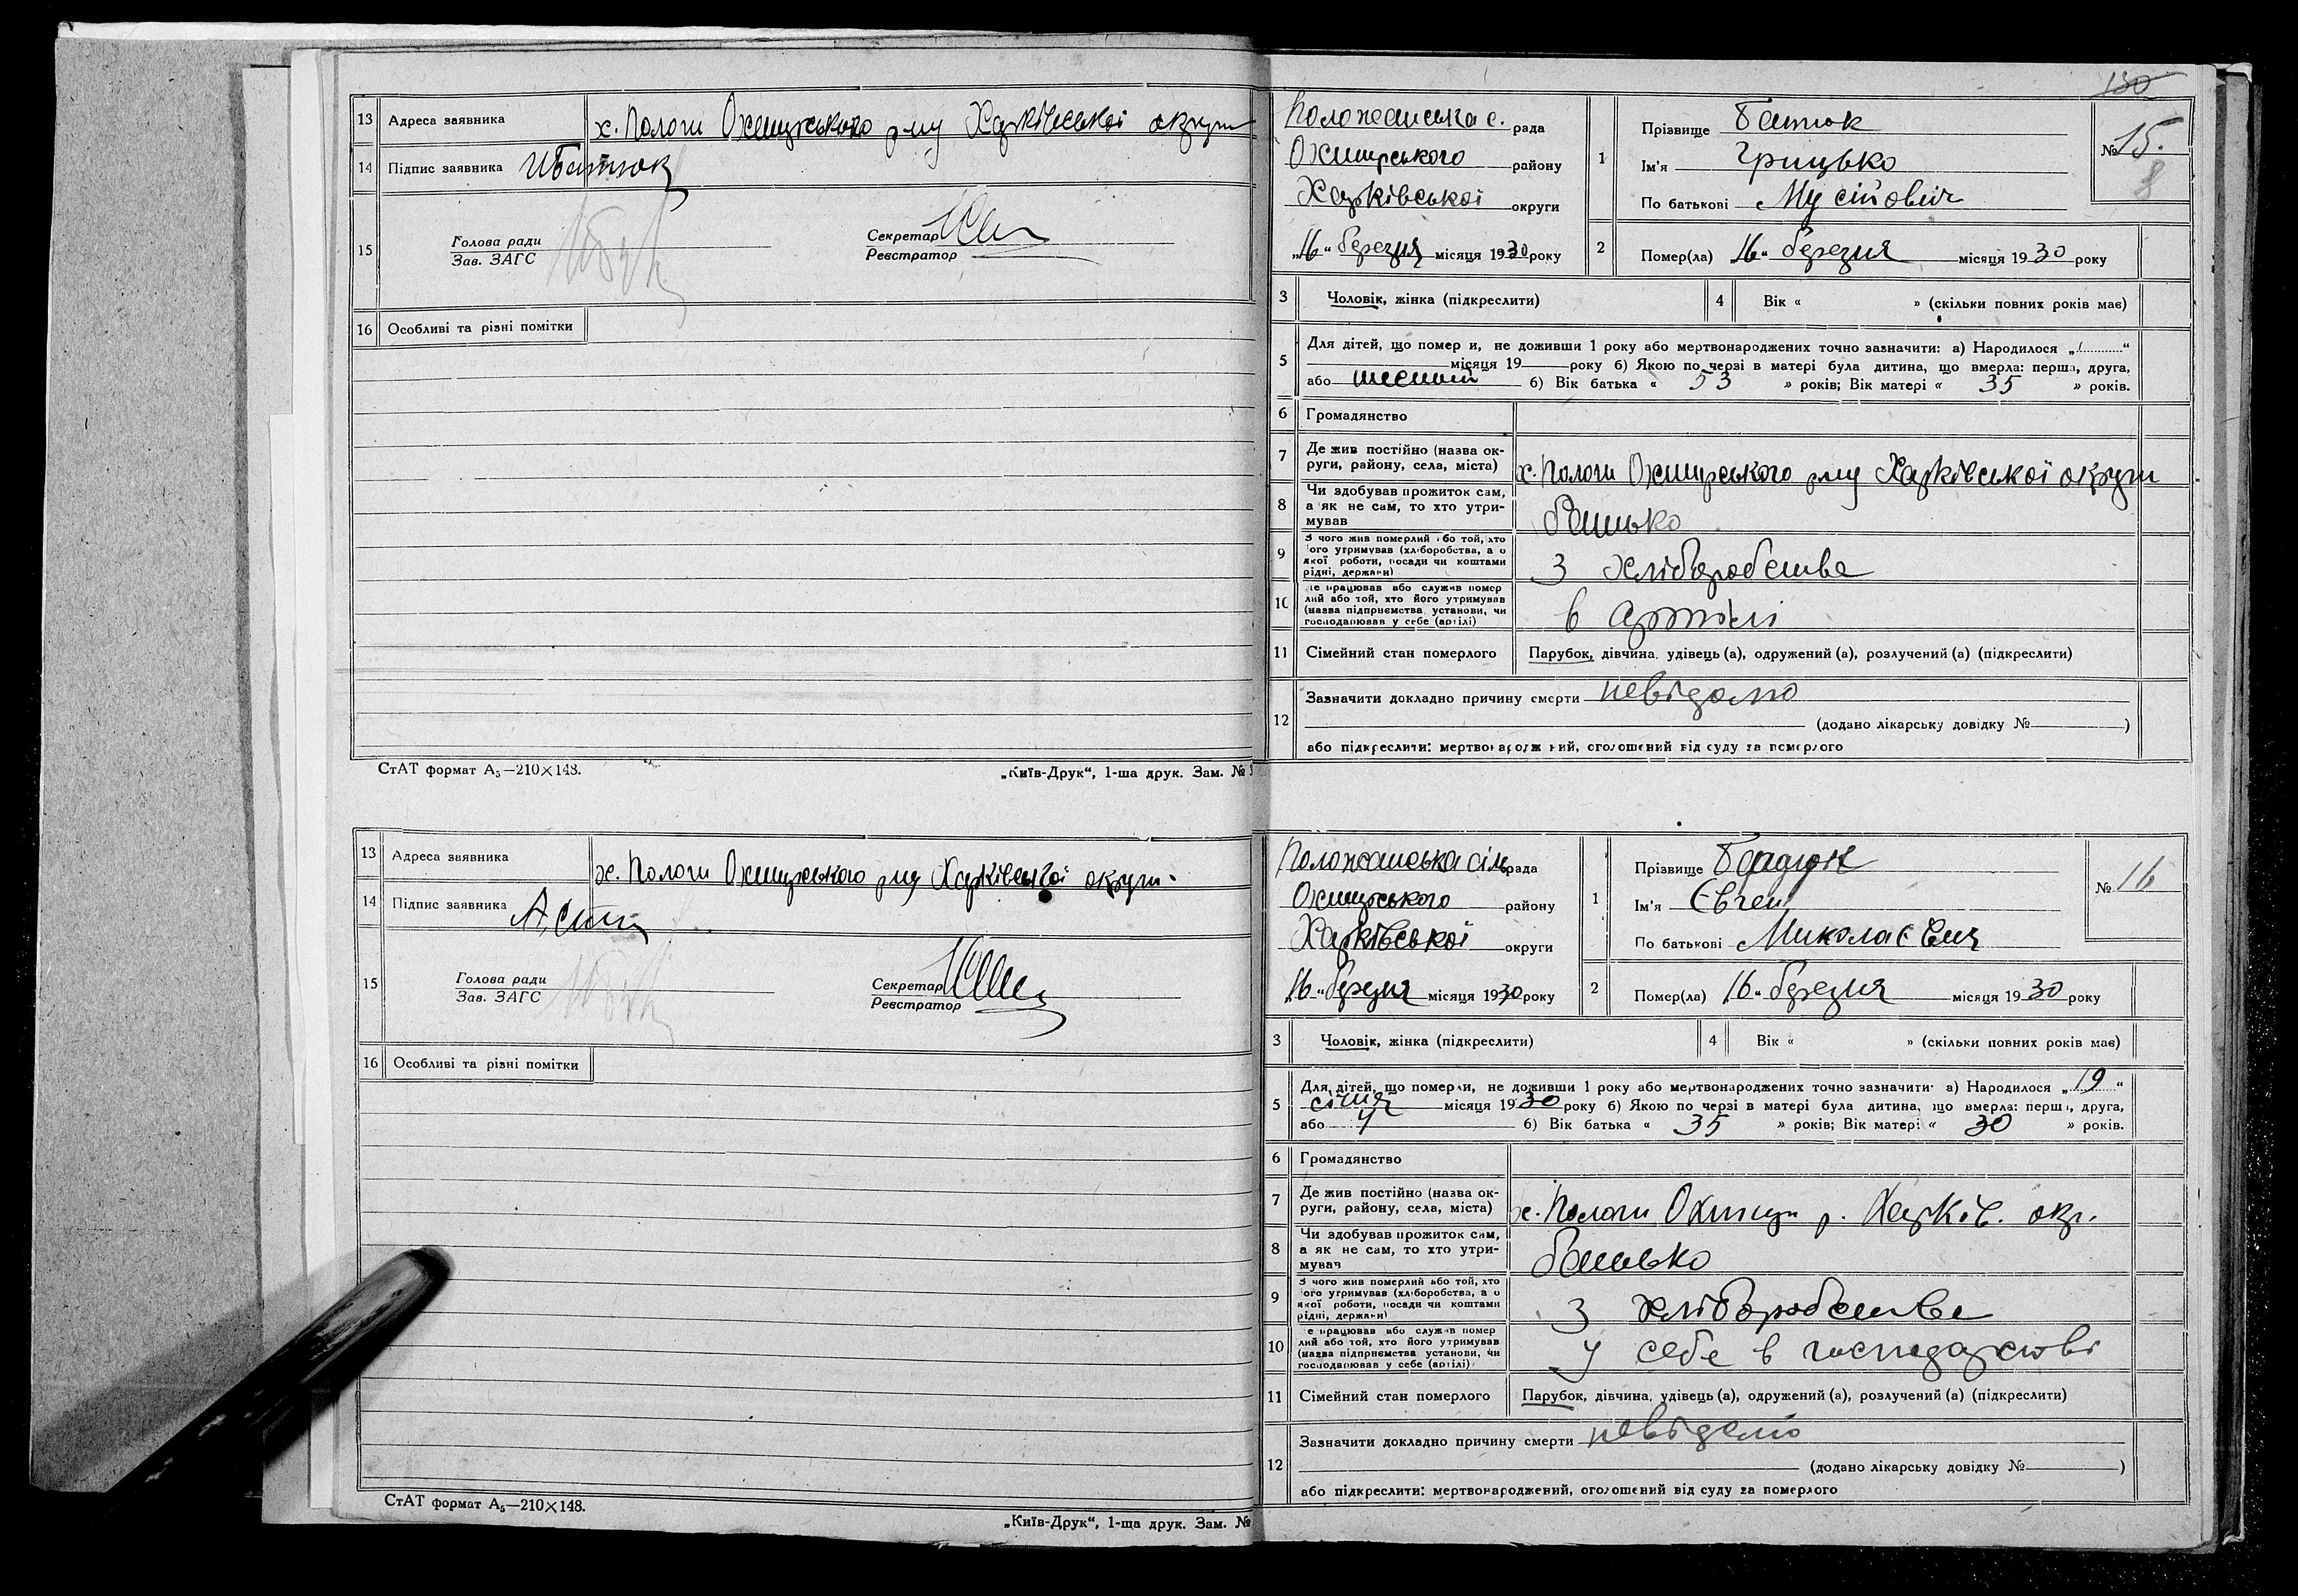 13 Адреса заявника х. Пологи Охтирського р-ну Харківської округи
14 Підпис заявника
15 Голова ради
Зав. ЗАГС
Секретар
Реєстратор
16 Особливі та різні помітки
СтАТ формат А₅—210×148.
„Київ-Друк“, 1-ша друк. Зам. №
130
Положанська с. рада
Охтирського району
Харківської округи
„16“ березня місяця 1930 року
1 Прізвище Батюк
Ім'я Грицько
По батькові Мусійович
№ 15.
8
2 Помер(ла) „16“ березня місяця 1930 року
3 Чоловік, жінка (підкреслити)
4 Вік « » (скільки повних років має)
5 Для дітей, що помер и, не доживши 1 року або мертвонароджених точно зазначити: а) Народилося „ “
місяця 19 року б) Якою по черзі в матері була дитина, що вмерла: перша, друга,
або шостий б) Вік батька « 53 » років; Вік матері « 35 » років.
6 Громадянство
7 Де жив постійно (назва ок-
руги, району, села, міста) х. Пологи Охтирського р-ну Харківської округи
8 Чи здобував прожиток сам,
а як не сам, то хто утри-
мував батько
9 З чого жив померлий або той, хто
його утримував (хліборобства, а о
якої роботи, посади чи коштами
рідні, держави) З хліборобства
10 де працював або служив помер
лий або той, хто його утримував
(назва підприємства, установи, чи
господарював у себе (артілі) в артілі
11 Сімейний стан померлого Парубок, дівчина, удівець (а), одружений (а), розлучений (а) (підкреслити)
12 Зазначити докладно причину смерти невідомо
(додано лікарську довідку № )
або підкреслити: мертвонароджений, оголошений від суду за померлого
13 Адреса заявника х. Пологи Охтирського р-ну Харківської округи.
14 Підпис заявника
15 Голова ради
Зав. ЗАГС
Секретар
Реєстратор
16 Особливі та різні помітки
СтАТ формат А₅—210×148.
„Київ-Друк“, 1-ща друк. Зам. №
Положанська сільрада
Охтирського району
Харківської округи
„16“ березня місяця 1930 року
1 Прізвище
Ім'я Євген
По батькові Миколаєвич
№ 16
2 Помер(ла) „16“ березня місяця 1930 року
3 Чоловік, жінка (підкреслити)
4 Вік « » (скільки повних років має)
5 Для дітей, що померли, не доживши 1 року або мертвонароджених точно зазначити: а) Народилося „19“
січня місяця 1930 року б) Якою по черзі в матері була дитина, що вмерла: перша, друга,
або 4 б) Вік батька « 35 » років; Вік матері « 30 » років.
6 Громадянство
7 Де жив постійно (назва ок-
руги, району, села, міста) х. Пологи Охтирь. р. Харків. окр.
8 Чи здобував прожиток сам,
а як не сам, то хто утри-
мував батько
9 З чого жив померлий або той, хто
його утримував (хліборобства, а о
якої роботи, посади чи коштами
рідні, держави) З хліборобства
10 де працював або служив помер
лий або той, хто його утримував
(назва підприємства установи, чи
господарював у себе (артілі) у себе в господарстві
11 Сімейний стан померлого Парубок, дівчина, удівець (а), одружений (а), розлучений (а) (підкреслити)
12 Зазначити докладно причину смерти невідомо
(додано лікарську довідку № )
або підкреслити: мертвонароджений, оголошений від суду за померлого